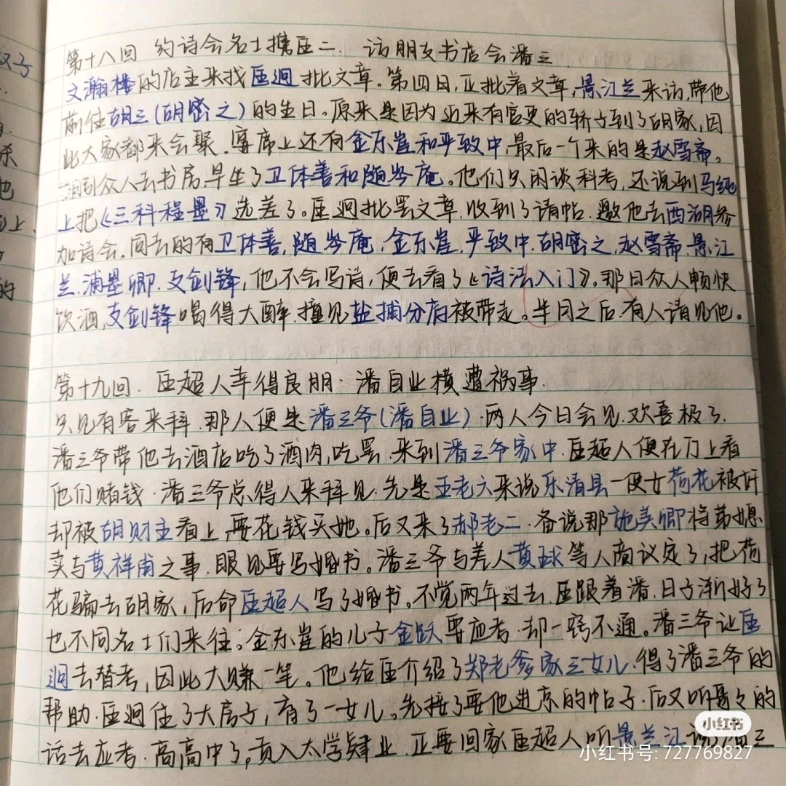 第十八回 约诗会名士携匡二. 访朋友书店会潘三
文瀚楼的店主来找匡迥批文章。第四日,正批着文章,景江兰来访,带他
前往胡三(胡密之)的生日。原来是因为近来有官吏的轿子到了胡家,因
此大家都来会聚。宴席上还有金东崖和严致中,最后一个来的是赵雪斋。
众人去书房,早坐了卫体善和随岑庵。他们只闲谈科考,还说到马纯
上把《三科程墨》选差了。匡迥批罢文章,收到了请帖.邀他去西湖参
加诗会。同去的有卫体善,随岑庵.金东崖.严致中.胡密之.赵雪斋.景江
兰.浦墨卿.支剑锋,他不会写诗,便去看了《诗法入门》。那日众人畅快
饮酒,支剑锋喝得大醉.撞见盐捕分府被带走。半月之后.有人请见他。
第十九回.匡超人幸得良朋.潘自业横遭祸事.
只见有客来拜.那人便是潘三爷(潘自业).两人今日会见.欢喜极了.
潘三爷带他去酒店吃了酒肉,吃罢.来到潘三爷家中.匡超人便在一旁上看
他们赌钱.潘三爷忽得人来拜见.先是王老六来说乐清县一使女荷花被奸
却被胡财主看上,要花钱买她。后又来了郝老二.备说那施美卿将弟媳
卖与黄祥甫之事.眼见要写婚书。潘三爷与差人黄球等人商议定了,把荷
花骗去胡家,后命匡超人写了婚书。不觉两年过去.匡跟着潘.日子渐好了
也不同名士们来往。金东崖的儿子金跃要应考.却一窍不通。潘三爷让匡
迥去替考,因此大赚一笔。他给匡介绍了郑老爹家三女儿.得了潘三爷的
帮助.匡迥住了大房子,育了一女儿。先接了要他进京的帖子.后又听爷的
话去应考.高高中了,贡入太学肄业.正要回家匡超人听景兰江说潘三
小红书
小红书号:727769827